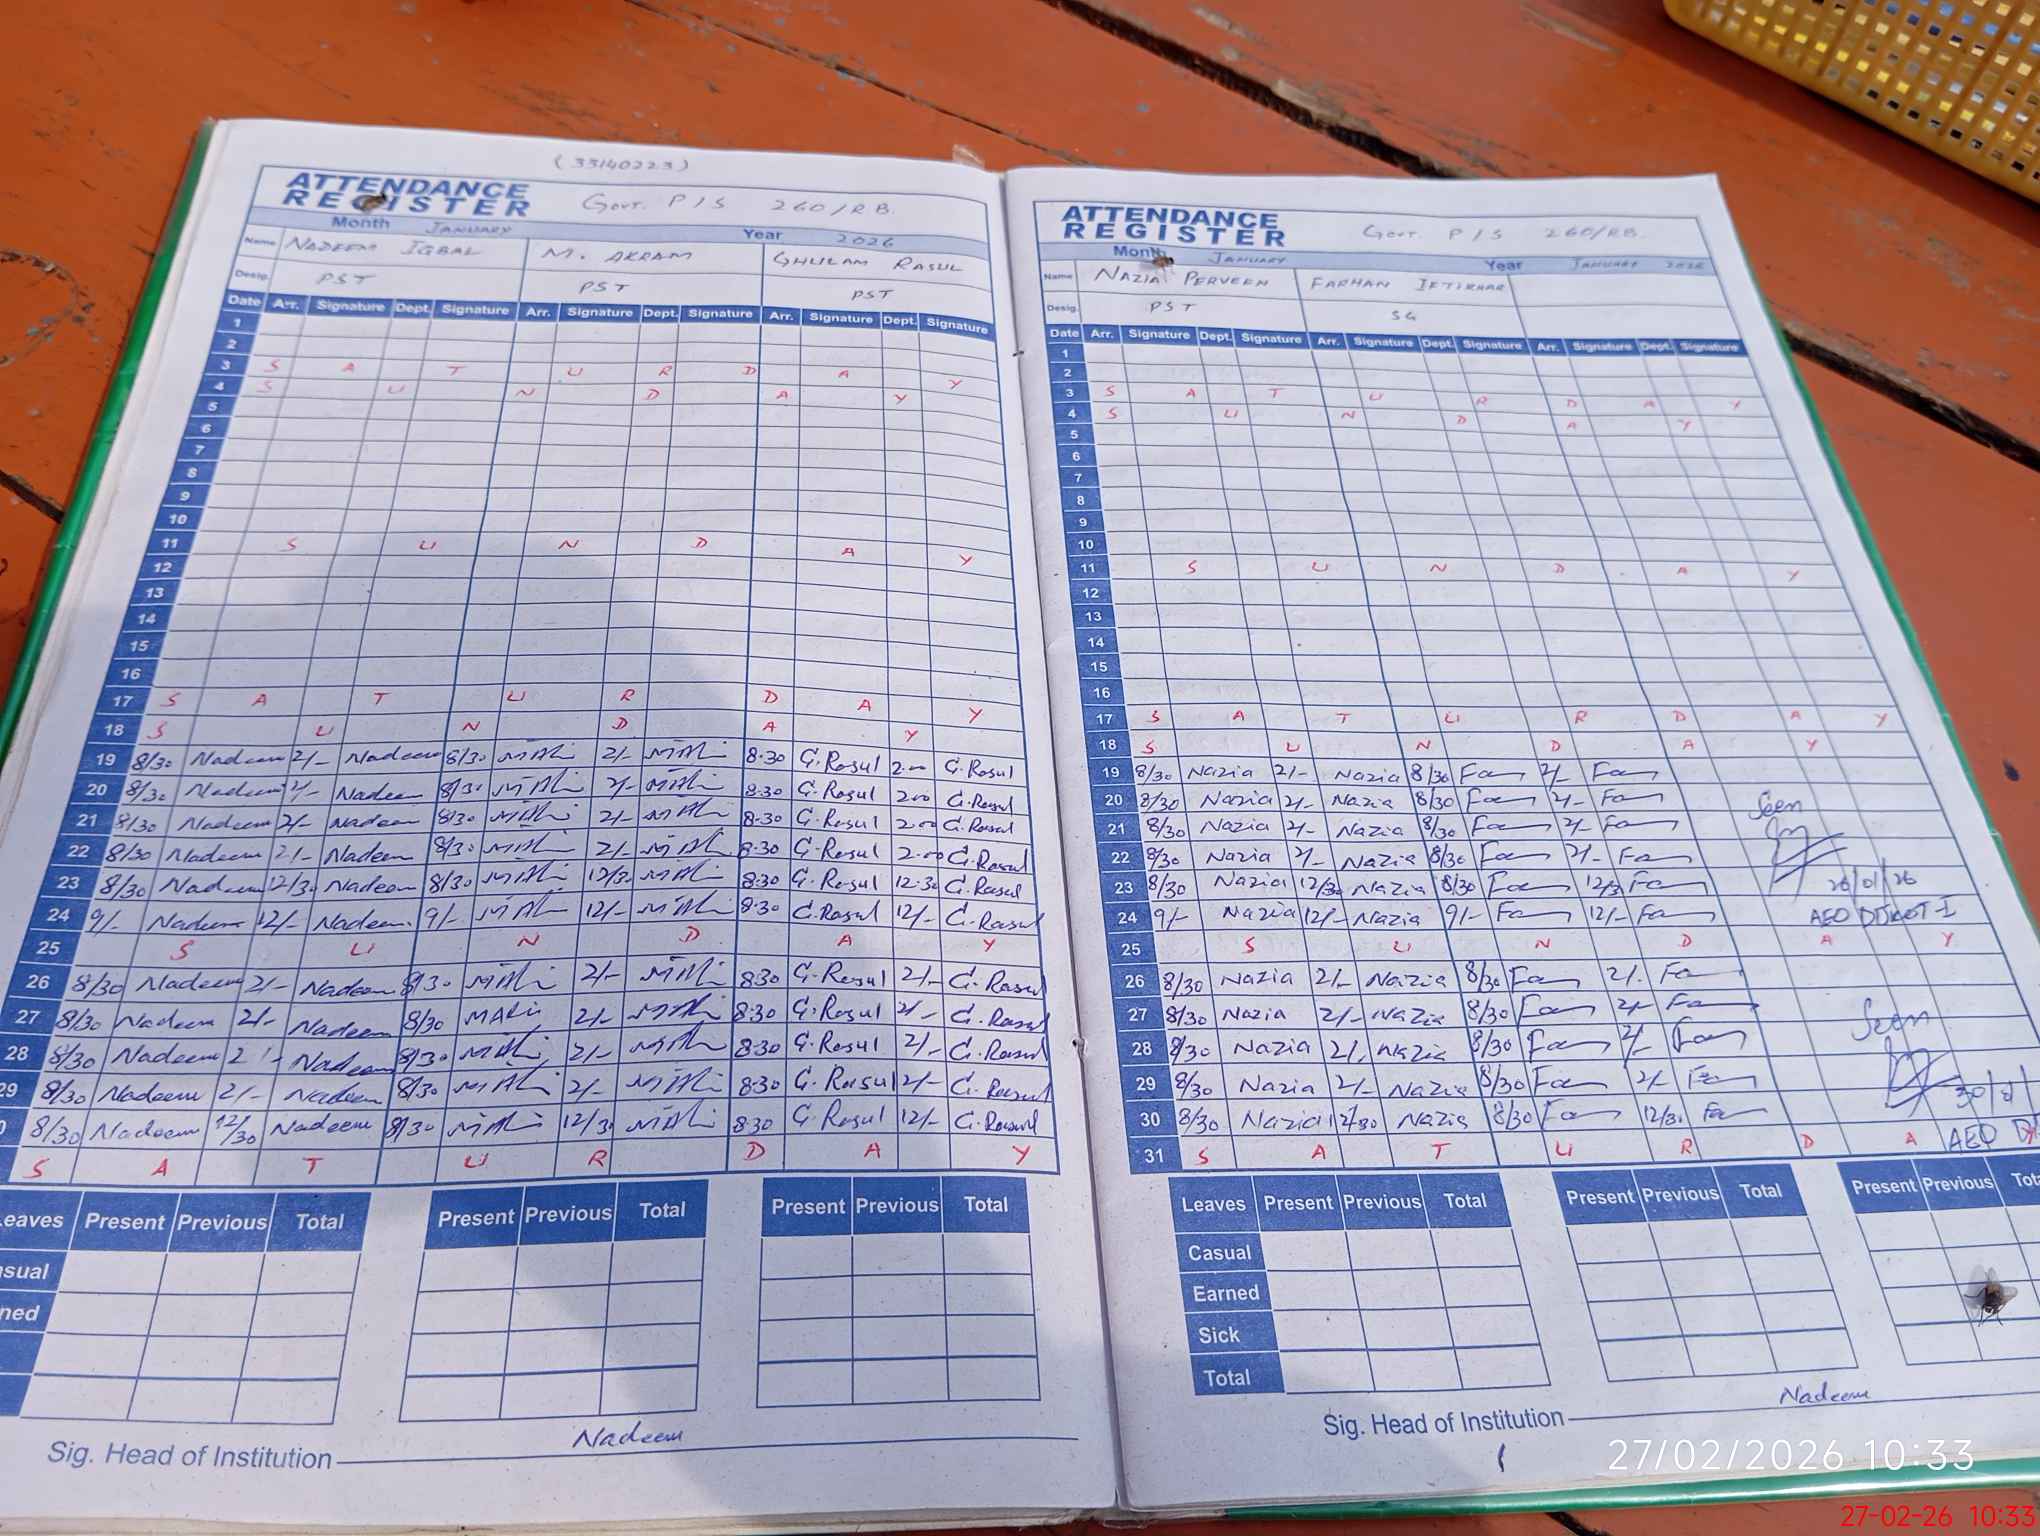 (33140223)
ATTENDANCE
REGISTER
Govt. P/S 260/RB.
Month JANUARY Year 2026
Name NADEEM IQBAL M. AKRAM GHULAM RASUL
Desig. PST PST PST
Date Arr. Signature Dept. Signature Arr. Signature Dept. Signature Arr. Signature Dept. Signature
1
2
3 S A T U R D A Y
4 S U N D A Y
5
6
7
8
9
10
11 S U N D A Y
12
13
14
15
16
17 S A T U R D A Y
18 S U N D A Y
19 8/30 Nadeem 2/- Nadeem 8/30 2/- 8.30 G.Rasul 2.00 G.Rasul
20 8/30 Nadeem 2/- Nadeem 8/30 2/- 8.30 G.Rasul 2.00 G.Rasul
21 8/30 Nadeem 2/- Nadeem 8/30 2/- 8.30 G.Rasul 2.00 G.Rasul
22 8/30 Nadeem 2/- Nadeem 8/30 2/- 8.30 G.Rasul 2.00 G.Rasul
23 8/30 Nadeem 12/30 Nadeem 8/30 12/30 8.30 G.Rasul 12.30 G.Rasul
24 9/- Nadeem 12/- Nadeem 9/- 12/- 8.30 G.Rasul 12/- G.Rasul
25 S U N D A Y
26 8/30 Nadeem 2/- Nadeem 8/30 2/- 8.30 G.Rasul 2/- G.Rasul
27 8/30 Nadeem 2/- Nadeem 8/30 2/- 8.30 G.Rasul 2/- G.Rasul
28 8/30 Nadeem 2/- Nadeem 8/30 2/- 8.30 G.Rasul 2/- G.Rasul
29 8/30 Nadeem 2/- Nadeem 8/30 2/- 8.30 G.Rasul 2/- G.Rasul
0 8/30 Nadeem 12/30 Nadeem 8/30 12/30 8.30 G.Rasul 12/- G.Rasul
S A T U R D A Y
eaves Present Previous Total Present Previous Total Present Previous Total
sual
ned
Sig. Head of Institution Nadeem
ATTENDANCE
REGISTER
Govt. P/S 260/RB.
Month JANUARY Year JANUARY 2026
Name NAZIA PERVEEN FARHAN IFTIKHAR
Desig. PST SG
Date Arr. Signature Dept. Signature Arr. Signature Dept. Signature Arr. Signature Dept. Signature
1
2
3 S A T U R D A Y
4 S U N D A Y
5
6
7
8
9
10
11 S U N D A Y
12
13
14
15
16
17 S A T U R D A Y
18 S U N D A Y
19 8/30 Nazia 2/- Nazia 8/30 2/-
20 8/30 Nazia 2/- Nazia 8/30 2/- Seen
21 8/30 Nazia 2/- Nazia 8/30 2/-
22 8/30 Nazia 2/- Nazia 8/30 2/-
23 8/30 Nazia 12/30 Nazia 8/30 12/30 26/01/26
24 9/- Nazia 12/- Nazia 9/- 12/- AEO
25 S U N D A Y
26 8/30 Nazia 2/- Nazia 8/30 2/-
27 8/30 Nazia 2/- Nazia 8/30 2/- Seen
28 8/30 Nazia 2/- Nazia 8/30 2/-
29 8/30 Nazia 2/- Nazia 8/30 2/-
30 8/30 Nazia 12/30 Nazia 8/30 12/30
31 S A T U R D A Y AEO
Leaves Present Previous Total Present Previous Total Present Previous Tot
Casual
Earned
Sick
Total
Sig. Head of Institution Nadeem
27/02/2026 10:33
27-02-26 10:33